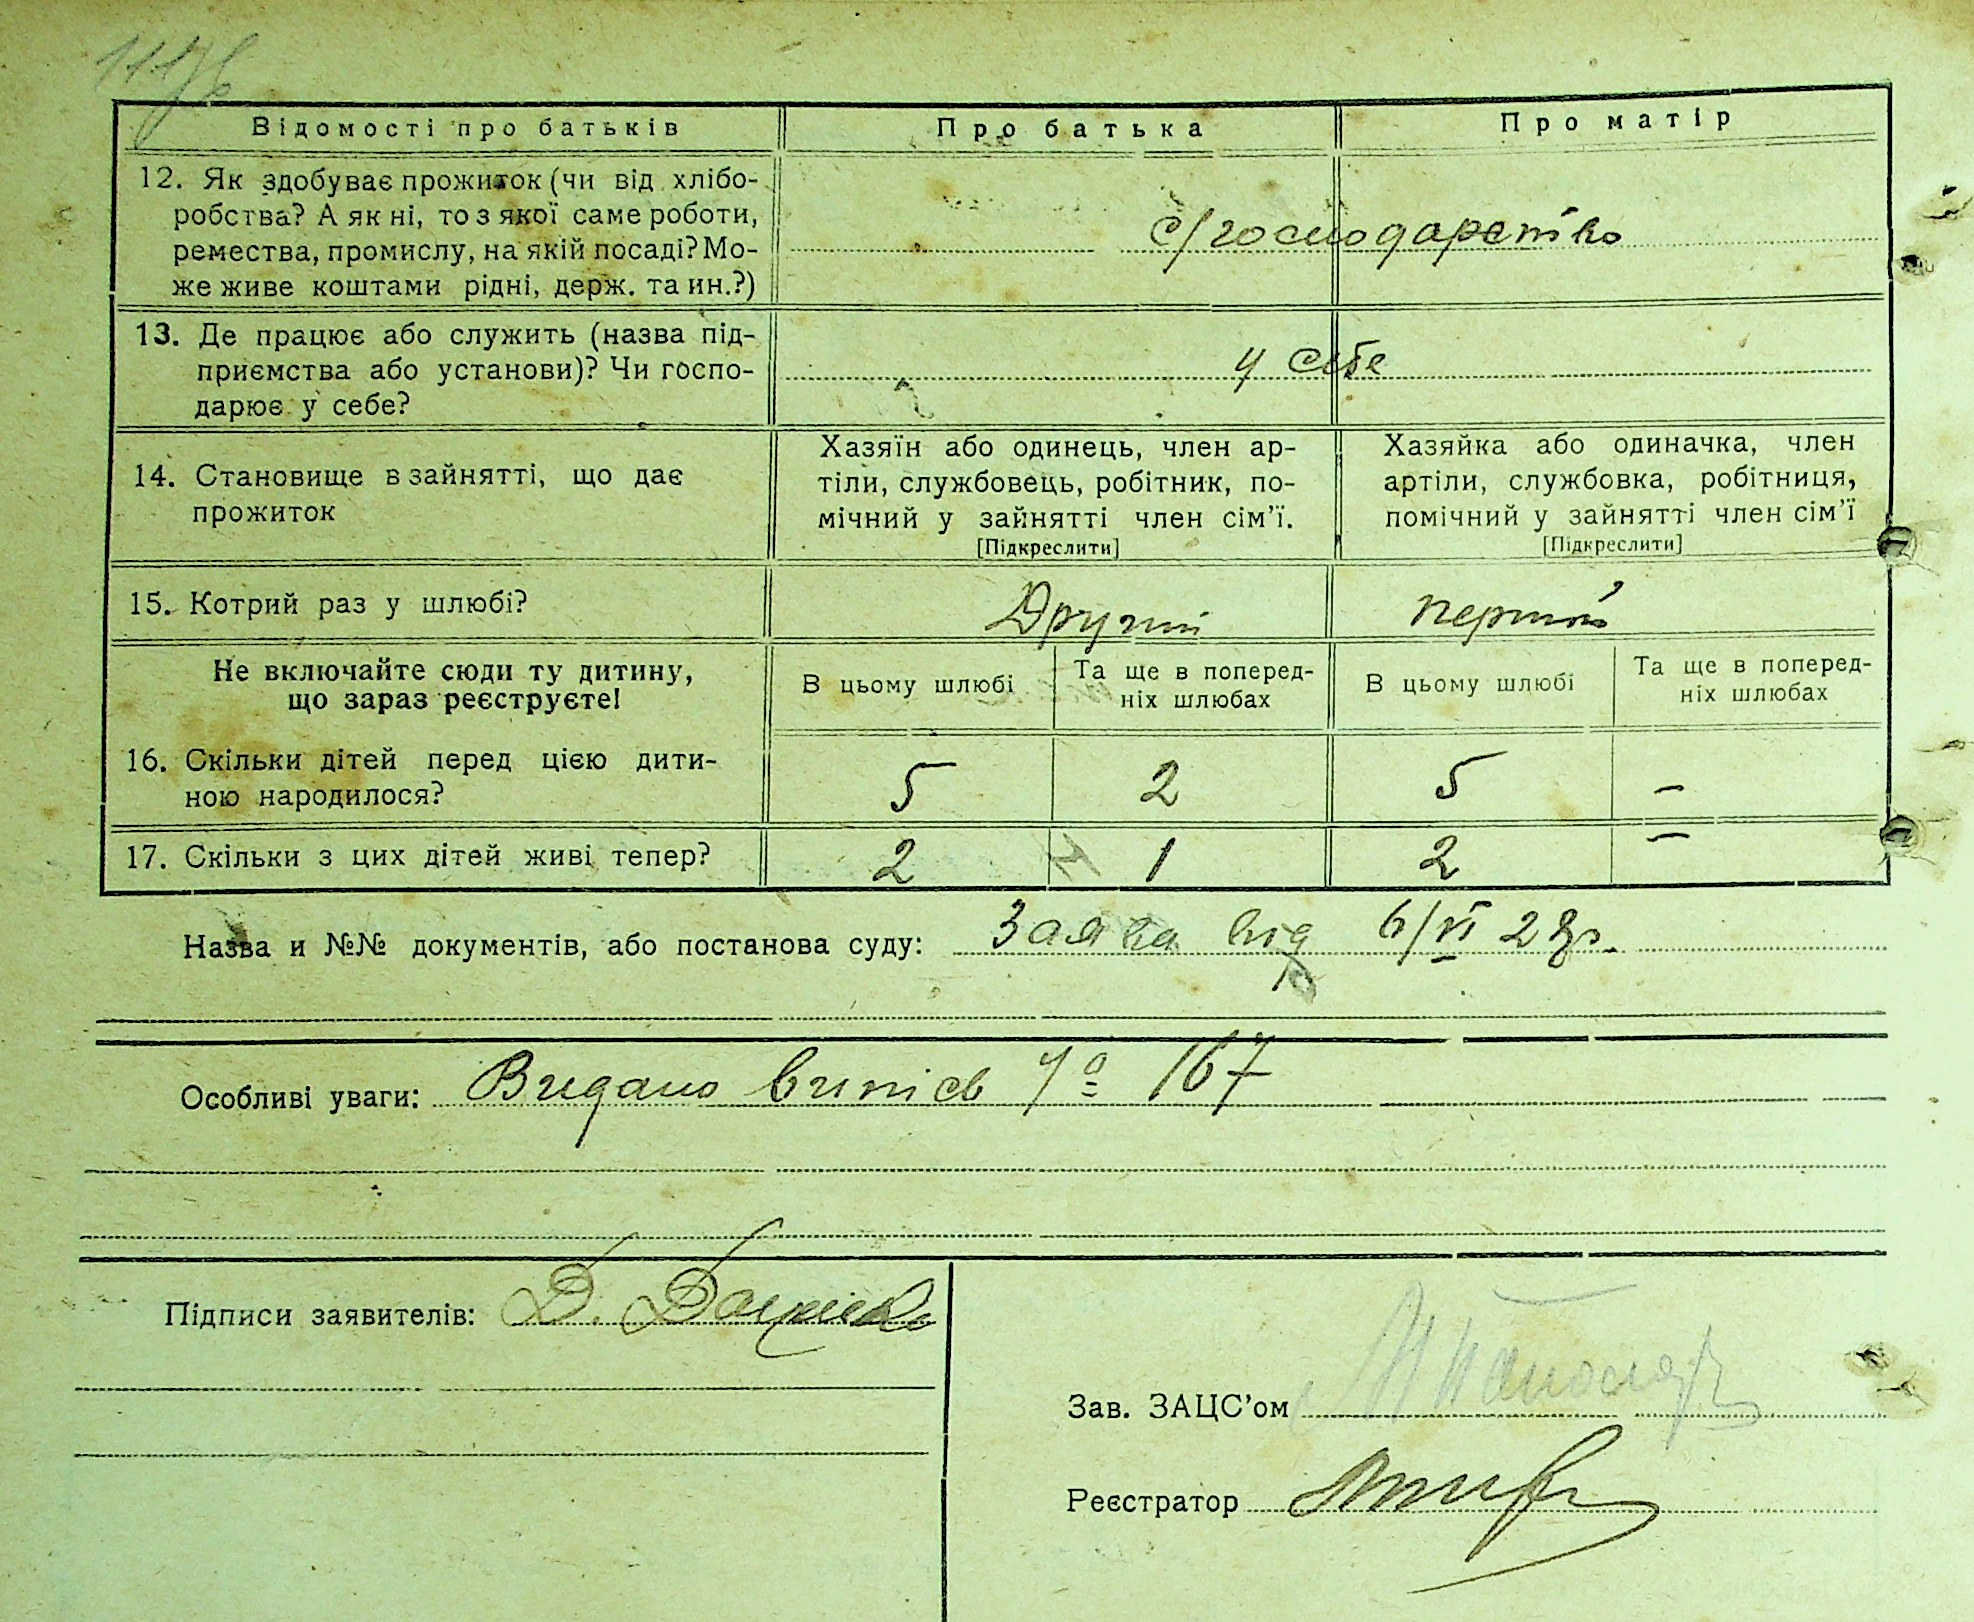 Відомості про батьків
Про батька
Про матір
12. Як здобуває прожиток (чи від хлібо-
робства? А як ні, то з якої саме роботи,
ремества, промислу, на якій посаді? Мо-
же живе коштами рідні, держ. та ин.?)
с/господарство
13. Де працює або служить (назва під-
приємства або установи)? Чи госпо-
дарює у себе?
у себе
14. Становище в зайнятті, що дає
прожиток
Хазяїн або одинець, член ар-
тіли, службовець, робітник, по-
мічний у зайнятті член сім’ї.
[Підкреслити]
Хазяйка або одиначка, член
артіли, службовка, робітниця,
помічний у зайнятті член сім’ї
[Підкреслити]
15. Котрий раз у шлюбі?
Другий
первий
Не включайте сюди ту дитину,
що зараз реєструєте!
В цьому шлюбі
Та ще в поперед-
ніх шлюбах
В цьому шлюбі
Та ще в поперед-
ніх шлюбах
16. Скільки дітей перед цією дити-
ною народилося?
5 2 5 –
17. Скільки з цих дітей живі тепер?
2 1 2 –
Назва и №№ документів, або постанова суду: Заява від 6/VI 28р.
Особливі уваги: Видано випись 167
Підписи заявителів: Д.
Зав. ЗАЦС’ом
Реєстратор